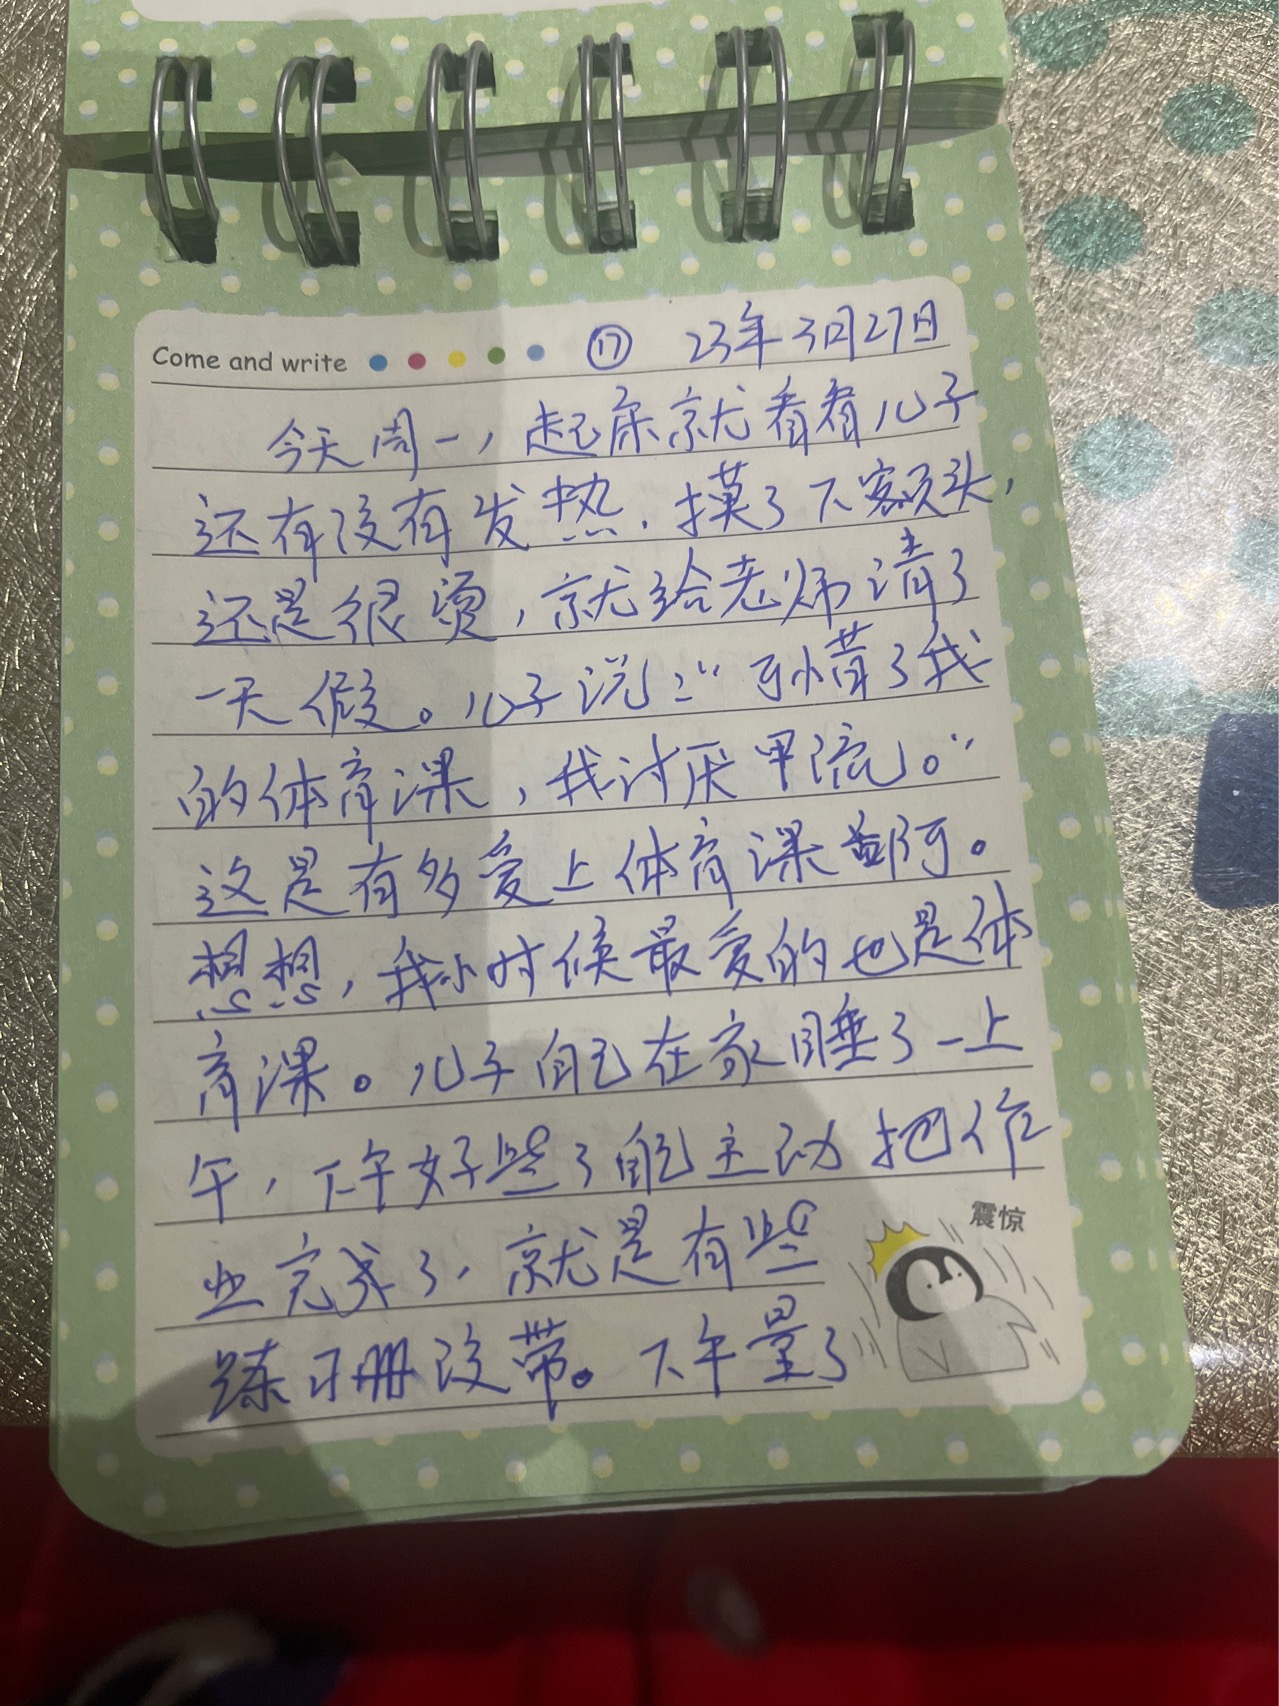 Come and write ⑰ 23年3月27日
今天周一，起床就看看儿子
还有没有发热，摸了下额头，
还是很烫，就给老师请了
一天假。儿子说：“可惜了我
的体育课，我讨厌甲流。”
这是有多爱上体育课啊。
想想，我小时候最爱的也是体
育课。儿子自己在家睡了一上
午，下午好些了自己主动把作
业完成了，就是有些
震惊
练习册没带。下午量了